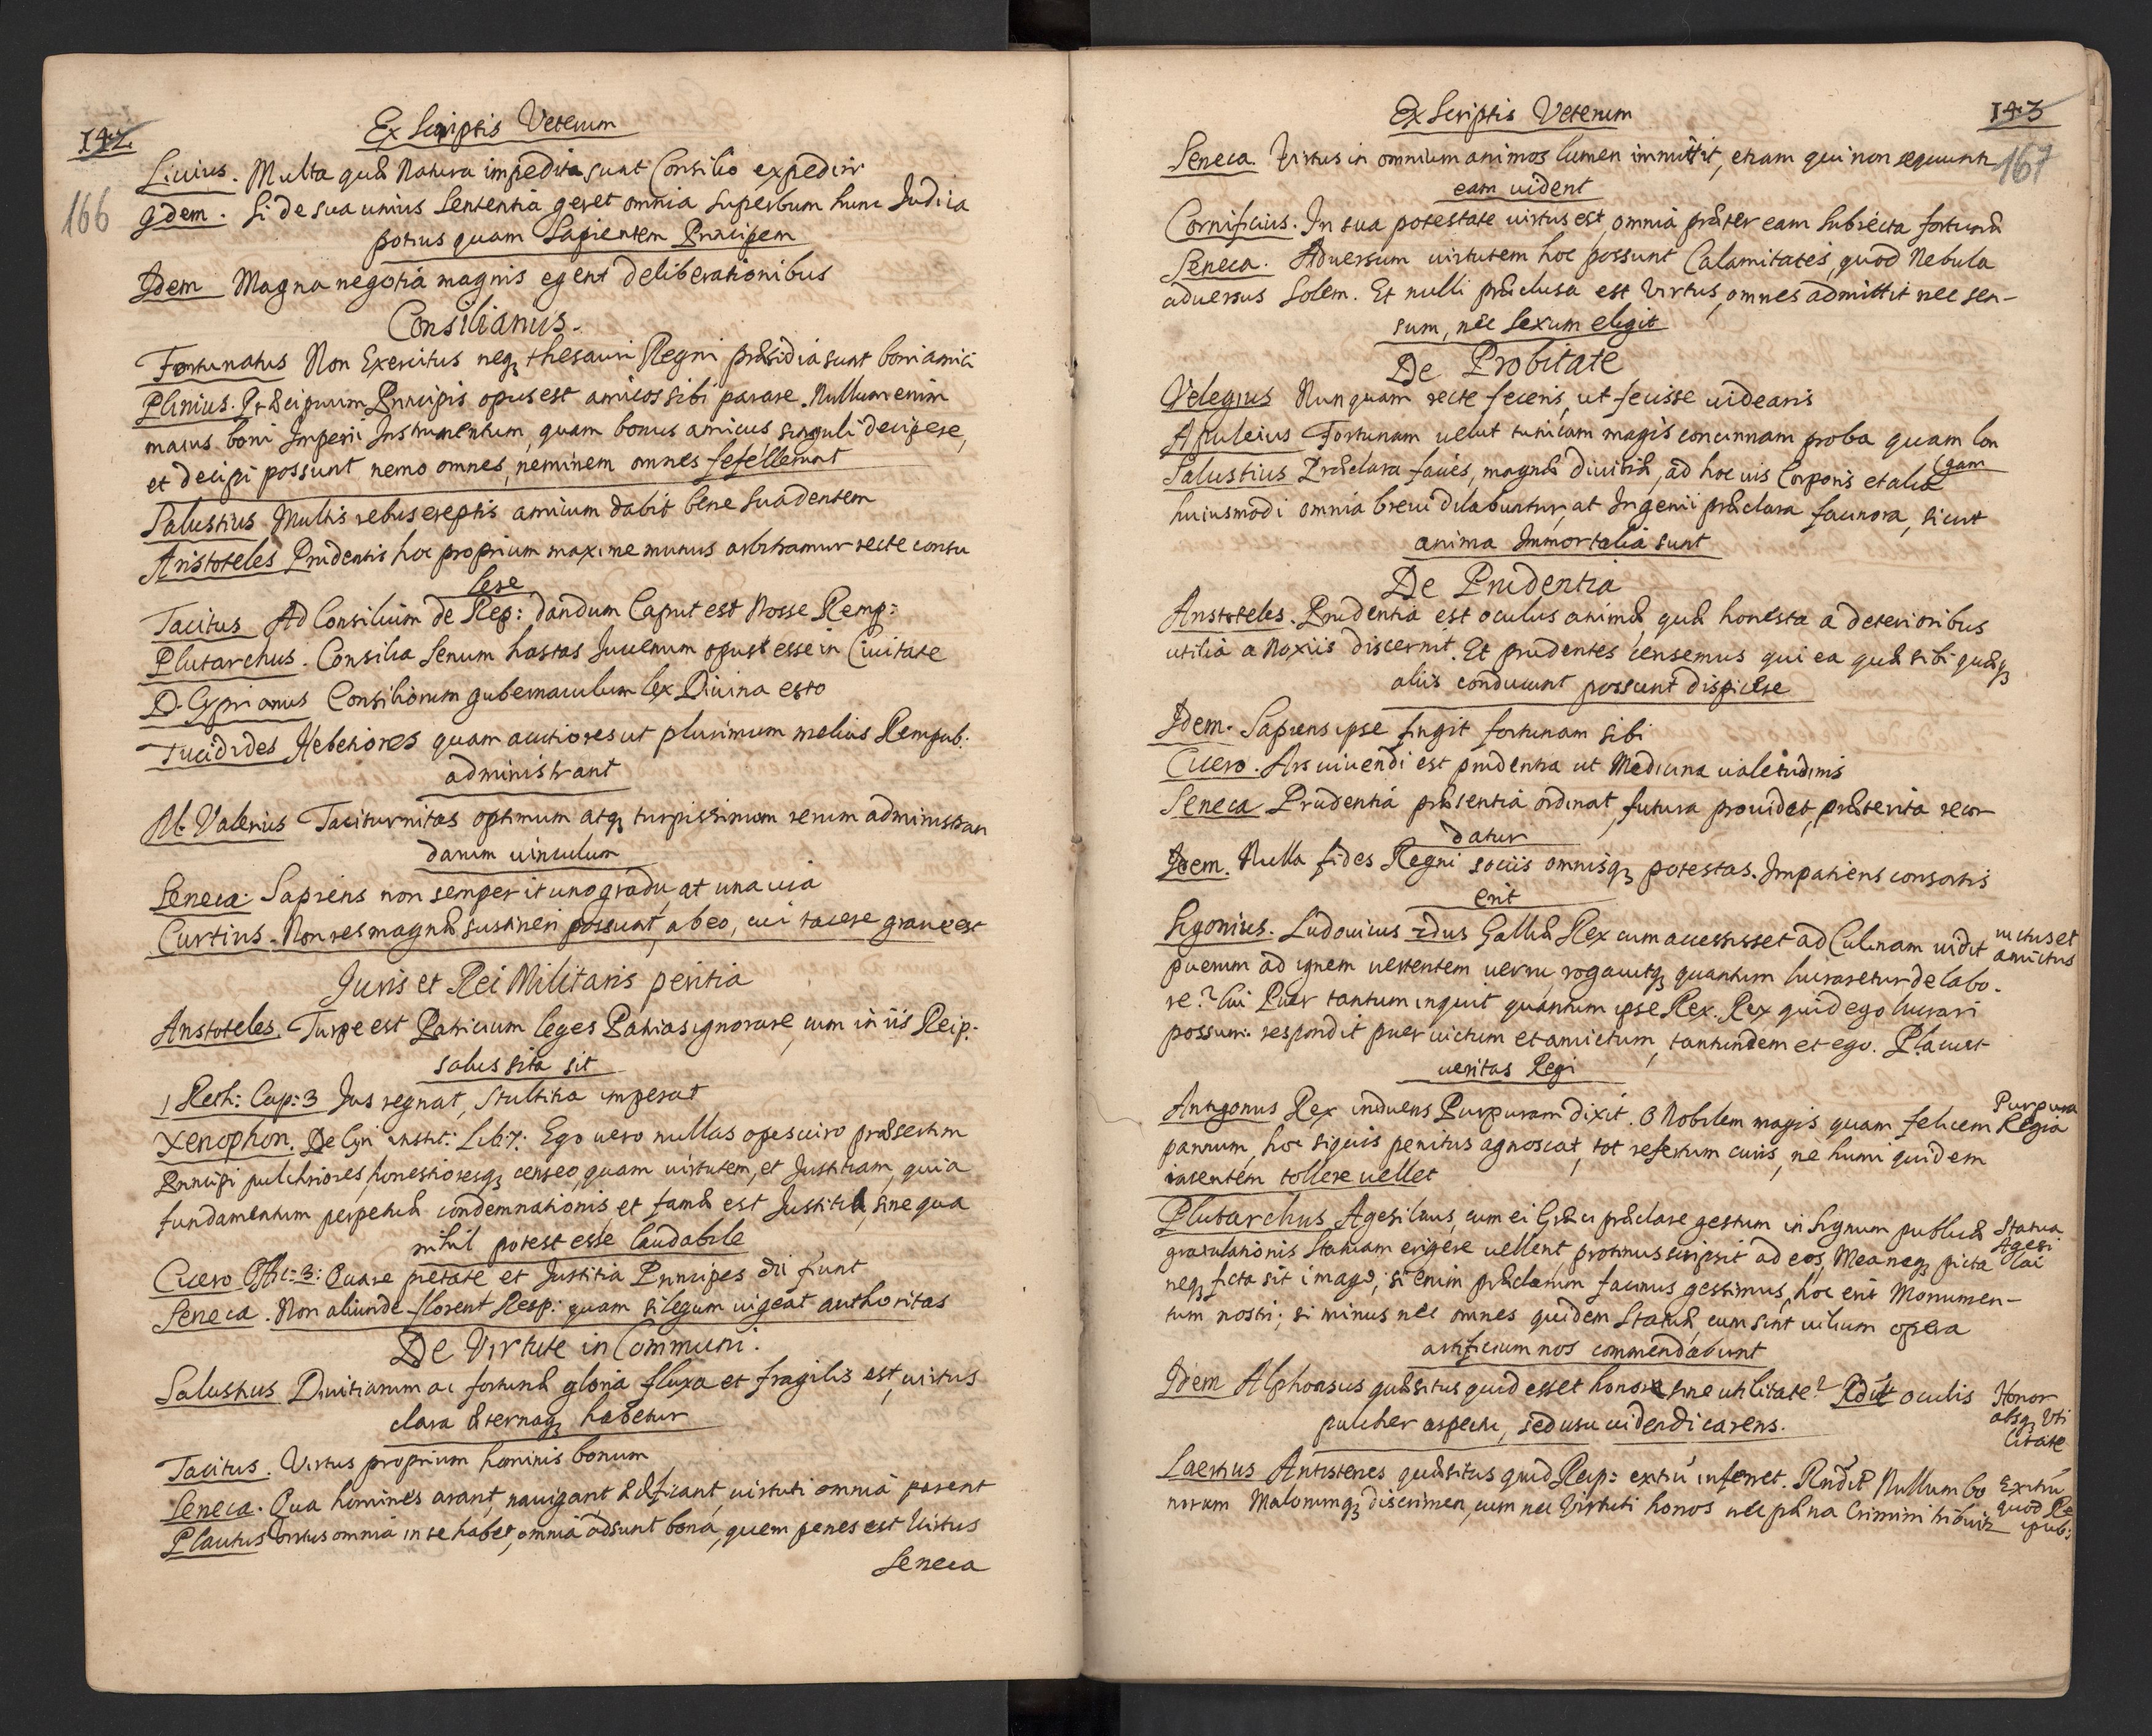 Ex Scriptis Veterum
142
166
Livius. Multa quæ Natura impedita sunt Consilio expediri
Idem. Si de sua unius Sententia geret omnia Superbum hunc Judica
potius quam Sapientem Principem
Idem Magna negotia magnis egent deliberationibus
Consiliarius.
Fortunatus Non Exercitus neqꝫ thesauri Regni præsidia sunt boni amici
Plinius. Præcipuum Principis opus est amicos sibi parare. Nullum enim
maius boni Imperii Instrumentum, quam bonus amicus, singuli decipere,
et decipi possunt nemo omnes, neminem omnes fefellerunt
Salustius Multis rebus ereptis amicum dabit bene Suadentem
Aristoteles Prudentis hoc proprium maxime munus arbitramur recte consu
lere
Tacitus Ad Consilium de Rep: dandum Caput est Nosse Remp:
Plutarchus. Consilia Senum hastas Juvenum opust esse in Civitate
D. Cyprianus Consiliorum gubernaculum lex Divina esto
Tucidides Hebetiores quam acutiores ut plurimum melius Rempub:
administrant
M. Valerius Taciturnitas optimum atqꝫ turpissimum rerum administran
darum vinculum
Seneca. Sapiens non semper it uno gradu, at una via
Curtius. Non res magnæ sustineri possunt, ab eo, cui tacere grave est
Juris et Rei Militaris peritia
Aristoteles. Turpe est Patricium leges Patrias ignorare, cum in iis Reip:
salus sita sit
1 Reth: Cap: 3 Jus regnat, Stultitia imperat
Xenophon. De Cyri instit: Lib: 7: Ego vero nullas opes viro præsertim
Principi pulchriores, honestioresqꝫ censeo, quam virtutem, et Justitiam, quia
fundamentum perpetuæ condemnationis et famæ est Justitia, sine qua
nihil potest esse laudabile
Cicero Offic: 3: Quare pietate et Justitia Principes dii fiunt
Seneca. Non aliunde florent Resp: quam si legum vigeat authoritas
De Virtute in Communi.
Salustius Divitiarum ac fortunæ gloria fluxa et fragilis est, virtus
clara æternaqꝫ habetur
Tacitus. Virtus proprium hominis bonum
Seneca. Qua homines arant, navigant ædificant, virtuti omnia parent
Plautus Virtus omnia in se habet, omnia adsunt bona, quem penes est Virtus
Seneca
Ex Scriptis Veterum
143
167
Seneca. Virtus in omnium animos lumen immittit, etiam qui non sequunt
eam vident
Cornificius. In sua potestate virtus est, omnia præter eam Subiecta fortunæ
Seneca. Adversum virtutem hoc possunt Calamitates, quod Nebula
adversus Solem. Et nulli præclusa est Virtus, omnes admittit nec sen-
sum, nec Sexum eligit
De Probitate
Velegius Nunquam recte feceris, ut fecisse videaris
Apuleius Fortunam velut tunicam magis concinnam proba quam lon
(gam
Salustius Præclara facies, magnæ divitiæ, ad hoc vis Corporis et alia
huiusmodi omnia brevi dilabuntur, at Ingenii præclara facinora, sicut
anima Immortalia sunt
De Prudentia
Aristoteles. Prudentia est oculus animæ, quæ honesta a deterioribus
utilia a Noxiis discernit. Et prudentes censemus qui ea quæ sibi quæqꝫ
aliis conducunt possunt dispicere
Idem. Sapiens ipse fingit fortunam sibi
Cicero. Ars vivendi est prudentia ut Medicina valetudinis
Seneca Prudentia præsentia ordinat, futura providet, præterita recor
datur
Idem. Nulla fides Regni sociis omnisqꝫ potestas. Impatiens consortis
erit
Sigonius. Ludovicus 2dus Galliæ Rex cum accessisset ad Culinam vidit
victus et
amictus
puerum ad ignem vertentem veru, rogavitqꝫ quantum lucraretur de labo-
re? Cui Puer tantum inquit quantum ipse Rex. Rex quid ego lucrari
possum: respondit puer victum et amictum, tantundem et ego. Placuit
veritas Regi
Antigonus Rex induens Purpuram dixit. O Nobilem magis quam felicem
Purpura
Regia
pannum, hoc siquis penitus agnoscat, tot refertum curis, ne humi quidem
iacentem tollere vellet
Plutarchus Agesilaus, cum ei Græci præclare gestum in Signum publicæ
Statua
Agesi
lai
gratulationis Statuam erigere vellent, protinus scripsit ad eos, Mea neqꝫ picta
neqꝫ ficta sit imago; si enim præclarum facinus gessimus, hoc erit Monumen-
tum nostri; si minus nec omnes quidem Statuæ, cum sint vilium opera
artificium nos commendabunt
Idem Alphonsus quæsitus quid esset honor sine utilitate? Rdit oculis
Honor
absqꝫ Uti
litate
pulcher aspectu, sed usu videndi carens.
Laertius Antistenes quæsitus quid Reip: exitiū inferret. Rndit Nullum bo
Exitiū
quod Re
ipub:
norum Malorumqꝫ discrimen, cum nec Virtuti honos nec pæna Crimini tribuit